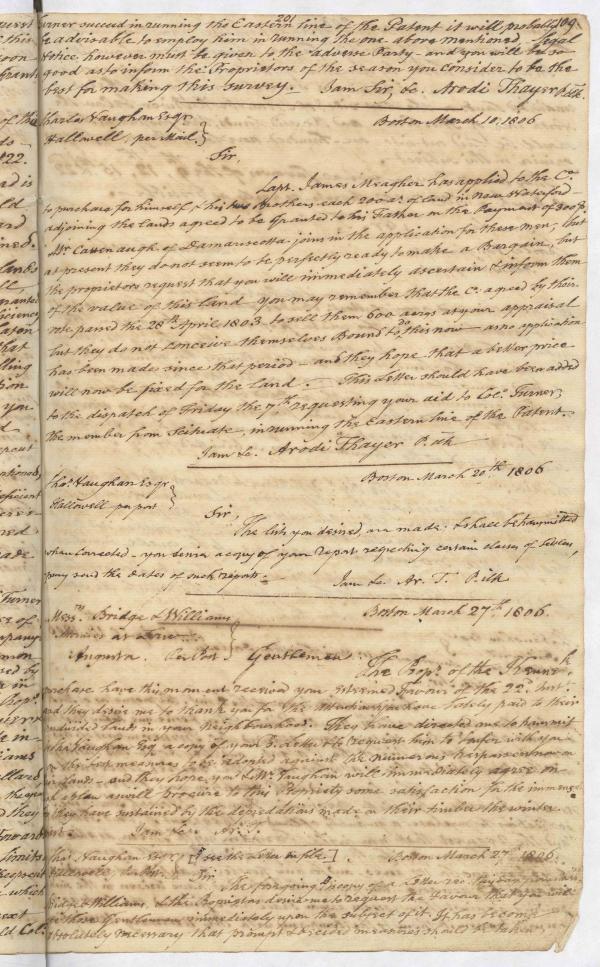 201
109
Turner succeed in running the Eastern line of the Patent it will probably
be adviseable to employ him in running the one above mentioned. Legal
Notice however must be given to the adverse Party – and you will be so
good as to inform the Proprietors of the season you consider to be the
best for making this Survey. – I am Sir, &c. Arodi Thayer P. Clk.
Charles Vaughan Esqr.
Boston March 10, 1806
Hallowell, per Mail.
Sir,
Capt. James Meagher has applied to the Co.
to purchase for himself & his two Brothers each 200 as. of land in New Waterford –
adjoining the lands agreed to be Granted to his Father on the Payment of 300
Mr. Cavenaugh of Damariscotta joins in the application for these men, that
at present they do not seem to be perfectly ready to make a Bargain, but
the proprietors request that you will immediately ascertain & inform them
of the value of this land you may remember that the Co. agreed by their
vote passed the 28th. April 1803 to sell them 600 acres at your appraisal
but they do not conceive themselves Bound to do this now – as no application
has been made since that period – and they hope that a better price
will now be fixed for the land. – This Letter should have been added
to the dispatch of Friday the 7th. requesting your aid to Colo. Turner
the member from Scituate, in running the Eastern line of the Patent.
I am &c. Arodi Thayer P. Clk
Boston March 20th. 1806
Chas. Vaughan Esqr.
Hallowell per post
Sir,
The lists you desired, are made & shall be transmitted
when Corrected – you desire a copy of your report respecting certain classes of Settlers,
pray send the dates of such reports. –
I am &c. Ar. T. P. Clk
Messrs. Bridge & Williams
Boston March 27th. 1806
Attornies at Law
Augusta. Per Post
Gentlemen
The Props. of the Kennk.
purchase have this moment received your esteemed favour of the 22d. Inst.
and they desire me to thank you for the attention you have lately paid to their
undivided lands in your Neighbourhood. They have directed me to transmit
Chas. Vaughan Esq a copy of your sd. Letter & to request him to confer with you
on the best measures to be adopted against the numerous trespassers now on
the lands – and they hope, you & Mr. Vaughan will immediately agree on
a plan as will procure to this Propriety some satisfaction for the immense
they have sustained by the depredations made on their timber the winter
I am &c. Ar. T.
Chas. Vaughan Esqr. [see the Letter on file]. Boston March 27th. 1806.
Hallowell
Sir
The foregoing is copy of a Letter
Bridge & Williams, & the Proprietors desire me to request the favour that you will
see those Gentlemen immediately upon the subject of it. It has become
absolutely necessary that prompt & decided measures should be taken